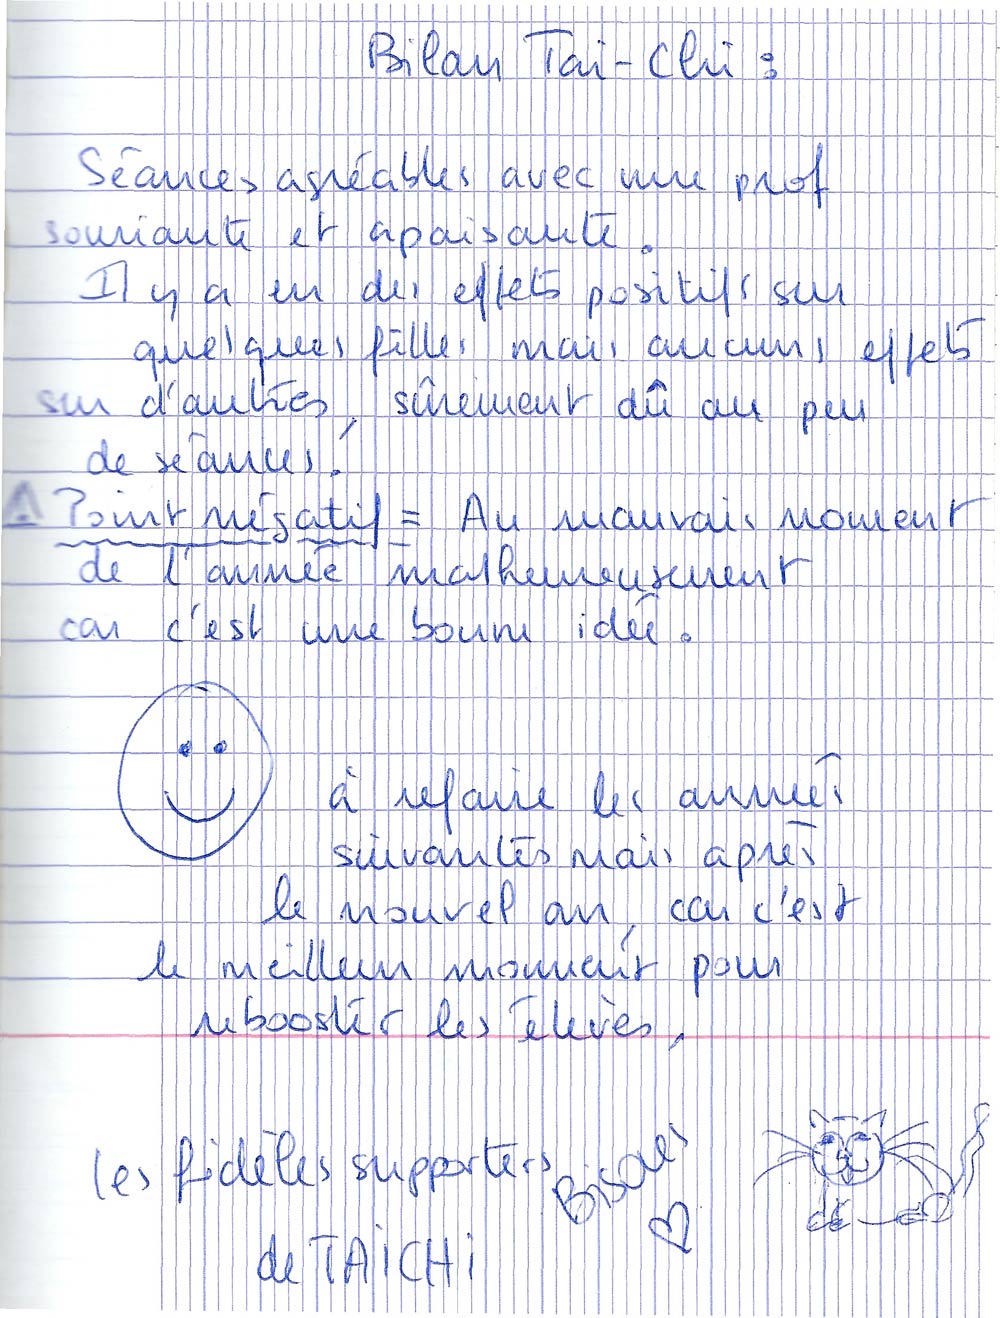 Bilan Tai-Chi :
Séances agréables avec une prof
souriante et apaisante.
Il y a eu des effets positifs sur
quelques filles mais aucuns effets
sur d'autres, sûrement dû au peu
de séances !
⚠ Point négatif = Au mauvais moment
de l'année malheureusement
car c'est une bonne idée.
à refaire les années
suivantes mais après
le nouvel an, car c'est
le meilleur moment pour
rebooster les élèves,
les fidèles supporters
Bisoues
de TAICHi